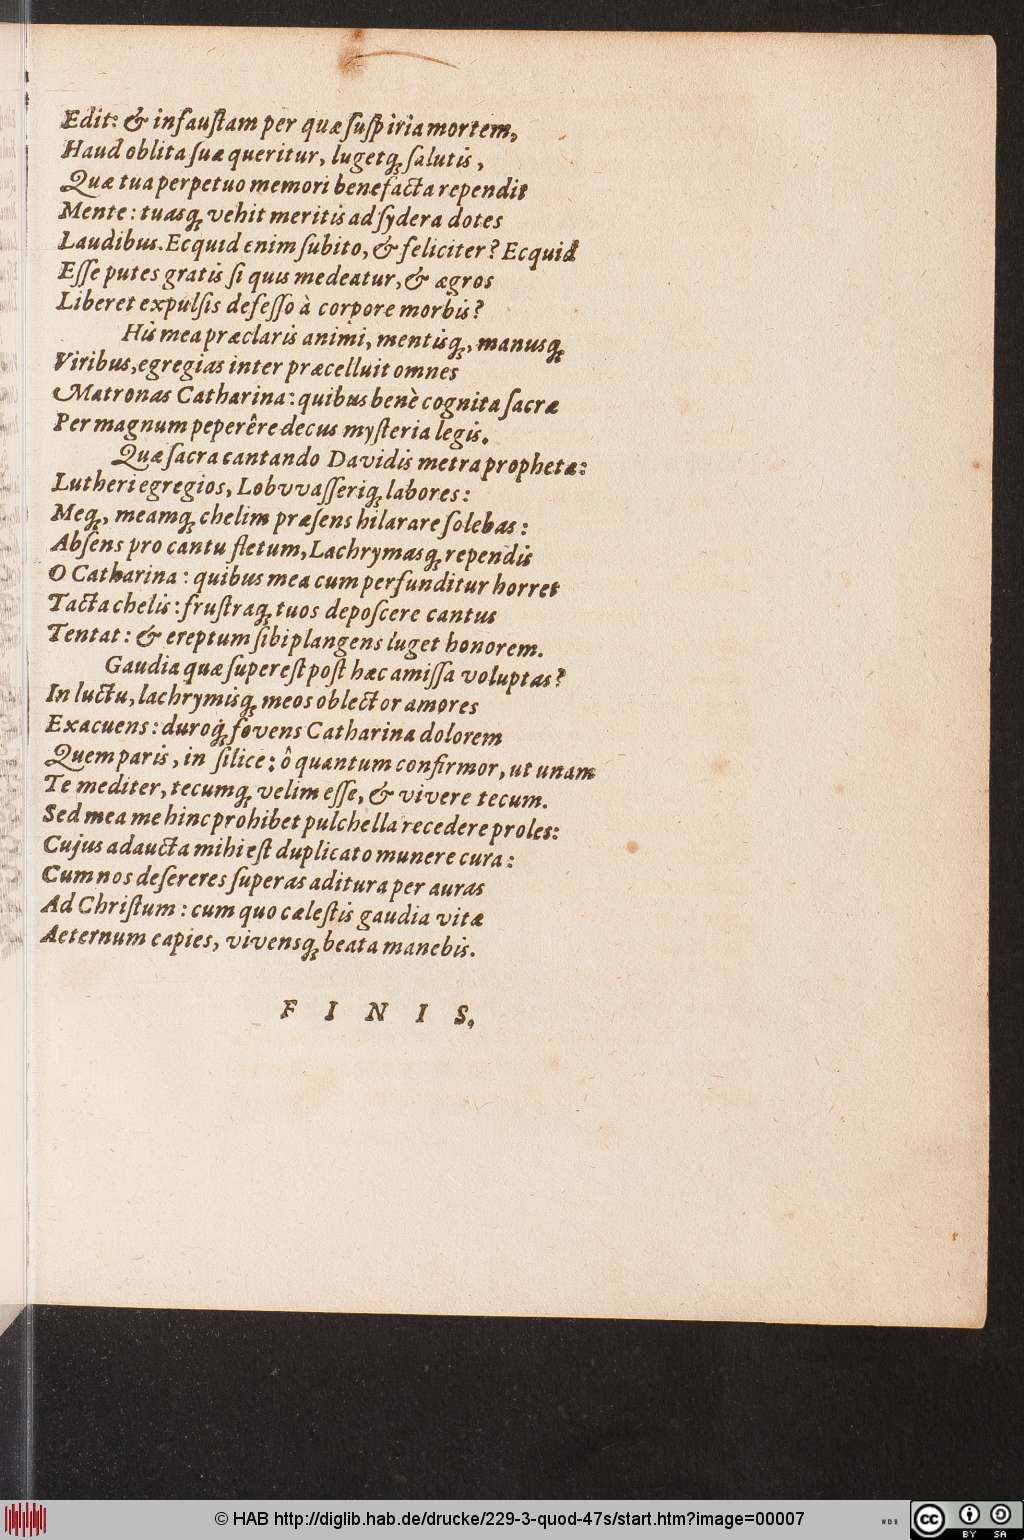 Edit: & infaustam per quæ suspiria mortem,
Haud oblita suæ queritur, lugetq; salutis,
Quæ tua perpetuo memori benefacta rependit
Mente: tuasq; vehit meritis ad sydera dotes
Laudibus. Ecquid enim subito, & feliciter? Ecquid
Esse putes gratis si quis medeatur, & ægros
Liberet expulsis defesso à corpore morbis?
His mea præclaris animi, mentisq;, manusq;
Viribus, egregias inter præcelluit omnes
Matronas Catharina: quibus benè cognita sacræ
Per magnum peperêre decus mysteria legis.
Quæ sacra cantando Davidis metra prophetæ:
Lutheri egregios, Lobvvasseriq; labores:
Meq;, meamq; chelim præsens hilarare solebas:
Absens pro cantu fletum, Lachrymasq; rependis
O Catharina: quibus mea cum perfunditur horret
Tacta chelis: frustraq; tuos deposcere cantus
Tentat: & ereptum sibi plangens luget honorem.
Gaudia quæ superest post hæc amissa voluptas?
In luctu, lachrymisq; meos oblector amores
Exacuens: duroq; fovens Catharina dolorem
Quem paris, in silice: ô quantum confirmor, ut unam
Te mediter, tecumq; velim esse, & vivere tecum.
Sed mea me hinc prohibet pulchella recedere proles:
Cujus adaucta mihi est duplicato munere cura:
Cum nos desereres superas aditura per auras
Ad Christum: cum quo cælestis gaudia vitæ
Aeternum capies, vivensq; beata manebis.
F I N I S,
© HAB http://diglib.hab.de/drucke/229-3-quod-47s/start.htm?image=00007
cc BY SA